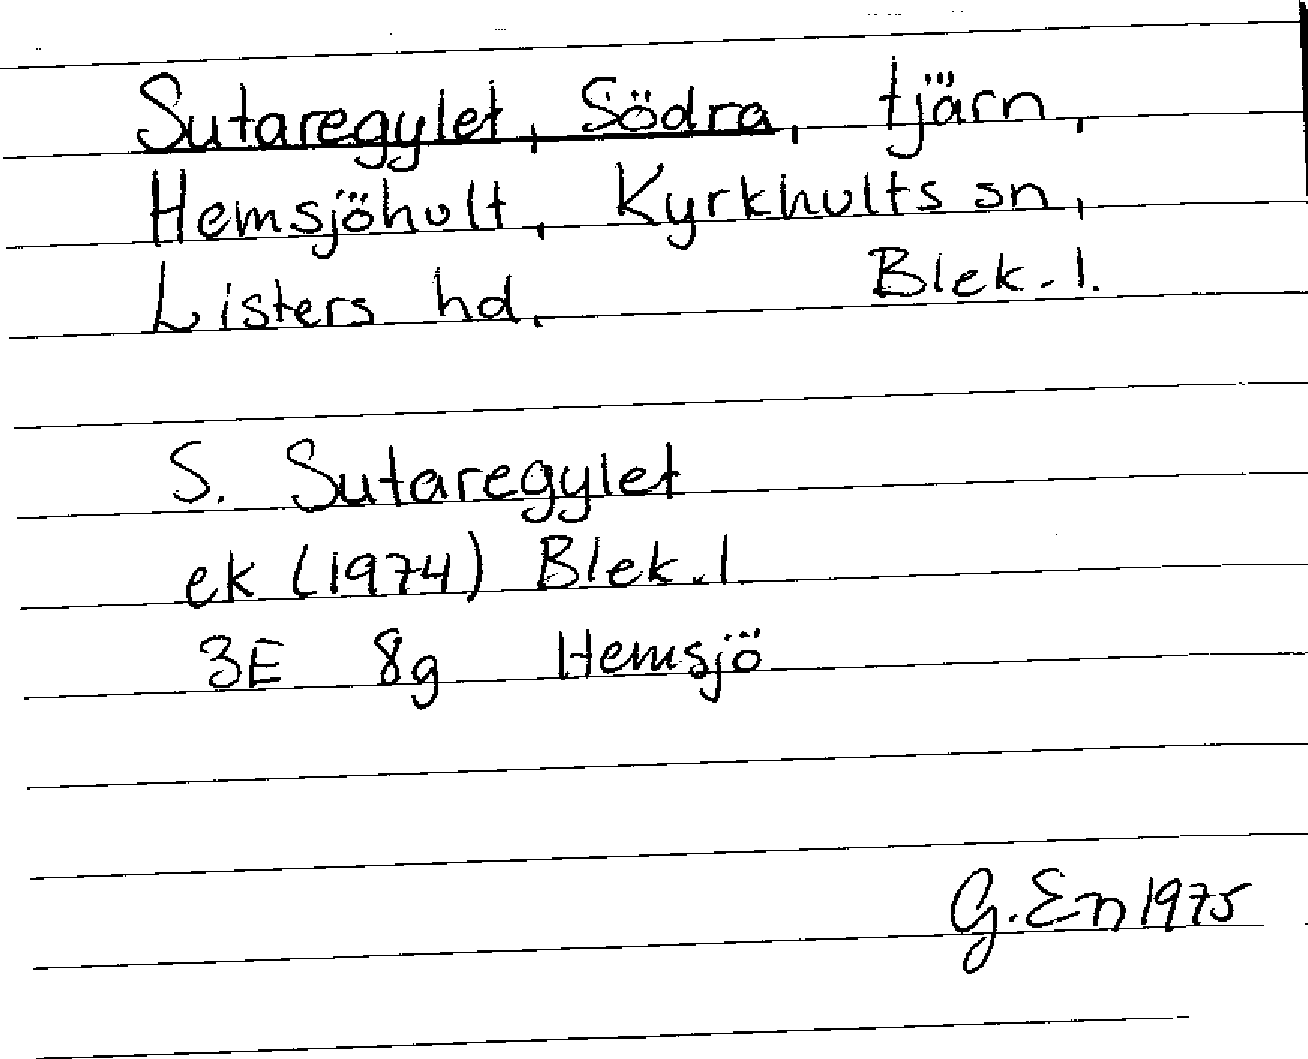 Sutaregylet, Södra, tjärn,
Hemsjöhult, Kyrkhults sn,
Listers hd. Blek. l.
S. Sutaregylet
ek (1974) Blek. l
3E 8g Hemsjö
G. En 1975